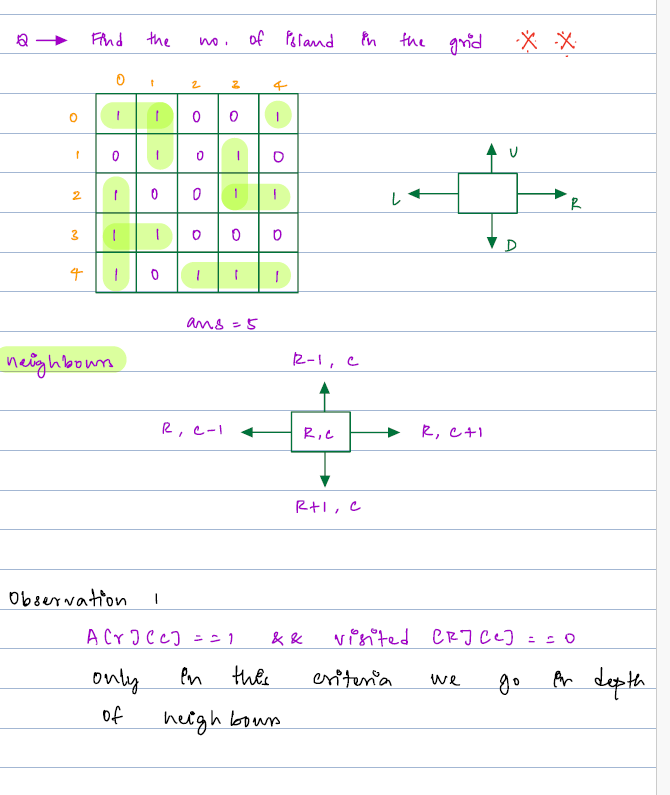 Q → Find the no. of island in the grid ※ ※
0 1 2 3 4
0 1 1 0 0 1
1 0 1 0 1 0
2 1 0 0 1 1
3 1 1 0 0 0
4 1 0 1 1 1
U
L R
D
ans = 5
neighbours
R-1, C
R, C-1 R,C R, C+1
R+1, C
Observation 1
A[r][c] == 1 && visited [R][c] == 0
only in this criteria we go in depth
of neighbours